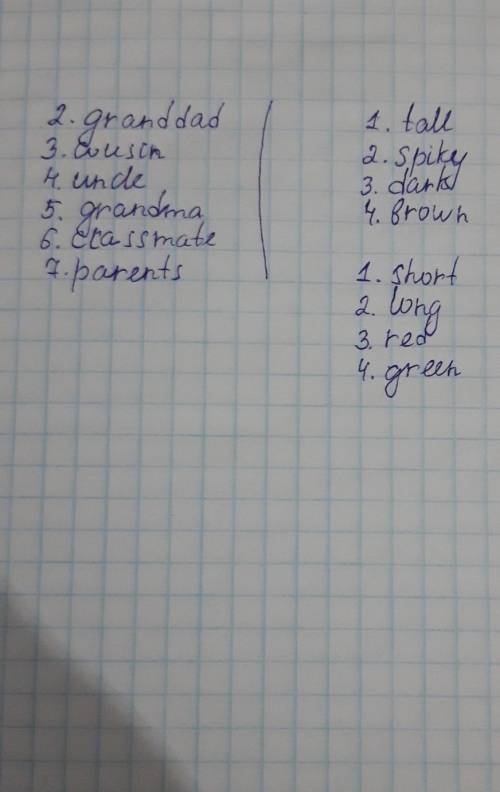 2. granddad
3. cousin
4. uncle
5. grandma
6. classmate
7. parents
1. tall
2. spiky
3. dark
4. brown
1. short
2. long
3. red
4. green